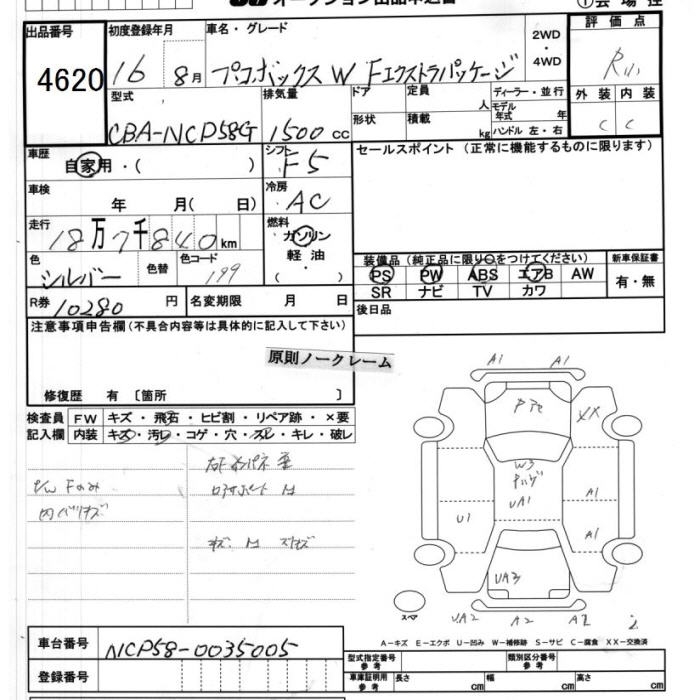 オークション出品申込書
①会場控
出品番号
4620
初度登録年月
16 8月
車名・グレード
プロボックス W Fエクストラパッケージ
2WD
・
4WD
評価点
型式
CBA-NCP58G
排気量
1500 cc
ドア
形状
定員
人
積載
kg
ディーラー・並行
モデル年式 年
ハンドル 左・右
外装 内装
C C
車歴
自家用・( )
シフト
F5
セールスポイント (正常に機能するものに限ります)
車検
年 月( 日)
冷房
AC
走行
18万7千840km
燃料
ガソリン
軽油
( )
色
シルバー
色替
色コード
199
装備品(純正品に限り○をつけてください)
新車保証書
PS PW ABS エアB AW
SR ナビ TV カワ
有・無
R券
10280 円
名変期限 月 日
後日品
注意事項申告欄(不具合内容等は具体的に記入して下さい)
原則ノークレーム
修復歴 有 〔箇所 〕
検査員
記入欄
FW キズ・飛石・ヒビ割・リペア跡・×要
内装 キズ・汚レ・コゲ・穴・スレ・キレ・破レ
P/W Fのみ
内バリキズ
A1 A1
XX
W3
UA1
A1
U1
A1
UA3
スペア
UA2 A2 A2
A－キズ E－エクボ U－凹み W－補修跡 S－サビ C－腐食 XX－交換済
車台番号
NCP58-0035005
登録番号
型式指定番号
参考
類別区分番号
参考
車庫証明用
参考
長さ cm
幅 cm
高さ cm